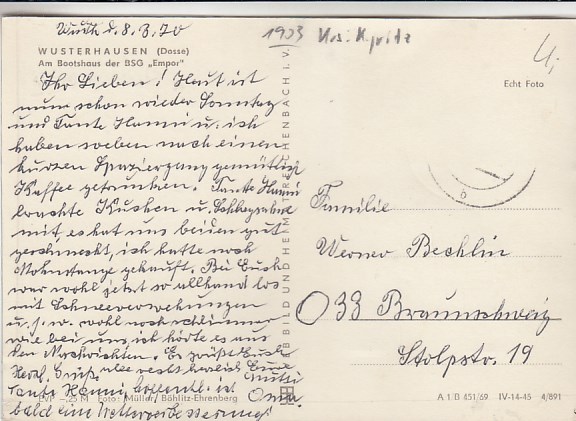 Wusth. d. 8.3.70
1903 Kr. Kyritz
WUSTERHAUSEN (Dosse)
Am Bootshaus der BSG „Empor"
Echt Foto
Ihr Lieben! Heut ist
nun schon wieder Sonntag
und Tante Hanni u. ich
haben soeben nach einem
kurzen Spaziergang gemütlich
Kaffee getrunken. Tante Hanni
brachte Kuchen u. Schlagsahne
mit, es hat uns beiden gut
geschmeckt, ich hatte noch
Mohnstange gekauft. Bei Euch
war wohl jetzt so allhand los
mit Schneeverwehungen
u.s.w. wohl noch schlimmer
wie bei uns, ich hörte es aus
den Nachrichten. Es grüßt Euch
alle recht herzlich Eure
Herzl. Grüße Mutti
Tante Hanni, hoffentl. ist Oma
bald eine Wetterverbesserung!
Familie
Werner Bechlin
33 Braunschweig
Stolpstr. 19
BILD UND HEIMAT REICHENBACH I. V.
EVP –,25 M Foto: Müller, Böhlitz-Ehrenberg
A 1/B 451/69 IV-14-45 4/891